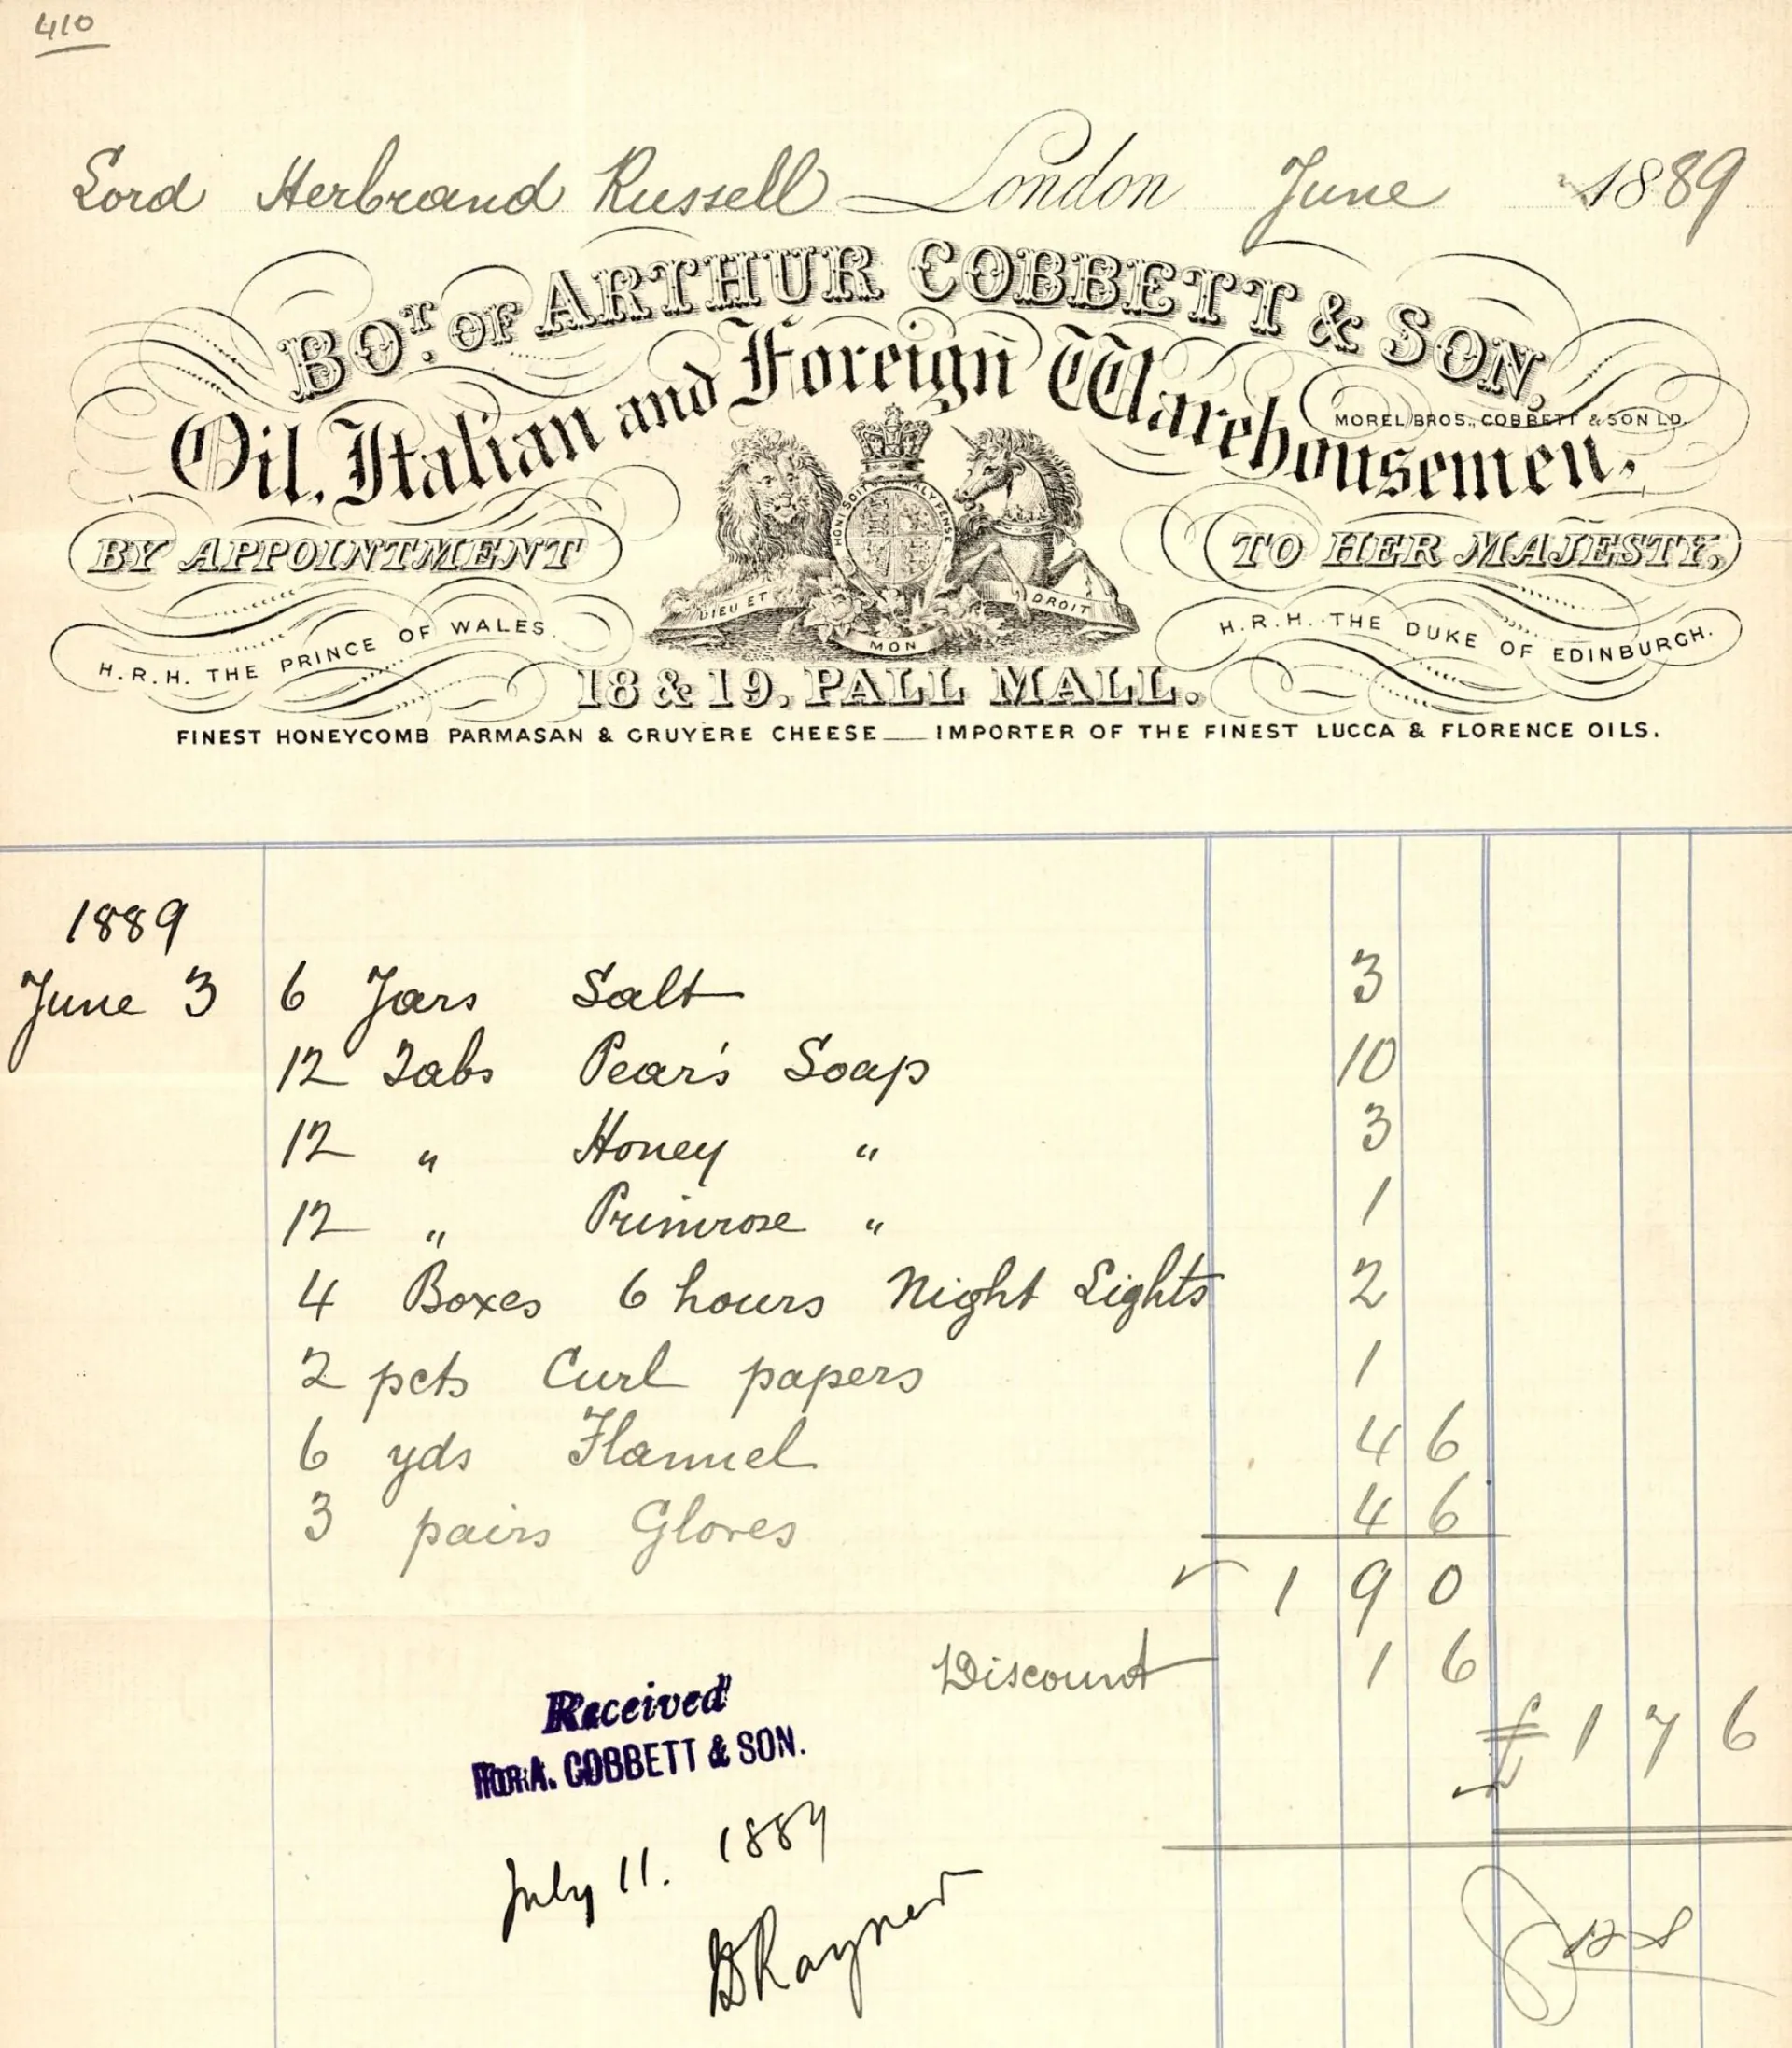 410
Lord Herbrand Russell London June 1889
BOT. OF ARTHUR COBBETT & SON,
Oil, Italian and Foreign Warehousemen,
MOREL BROS., COBBETT & SON LD.
HONI SOIT MAL Y PENSE
BY APPOINTMENT TO HER MAJESTY,
DIEU ET MON DROIT
H.R.H. THE PRINCE OF WALES. H.R.H. THE DUKE OF EDINBURGH.
18 & 19, PALL MALL.
FINEST HONEYCOMB PARMASAN & GRUYERE CHEESE — IMPORTER OF THE FINEST LUCCA & FLORENCE OILS.
1889
June 3 6 Jars Salt 3
12 Tabs Pear's Soap 10
12 " Honey " 3
12 " Primrose " 1
4 Boxes 6 hours Night Lights 2
2 pcts Curl papers 1
6 yds Flannel 4 6
3 pairs Gloves 4 6
1 9 0
Discount 1 6
£ 1 7 6
Received
For A. COBBETT & SON.
July 11. 1889
Rayner